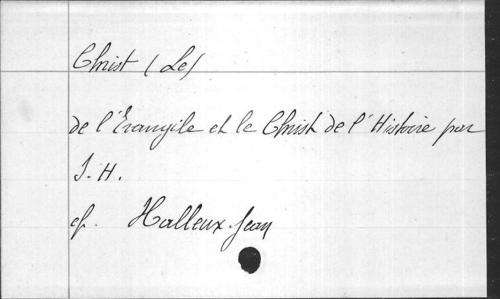 Christ (Le)
de l'Évangile et le Christ de l'Histoire par
J. H.
cf. Halleux Jean